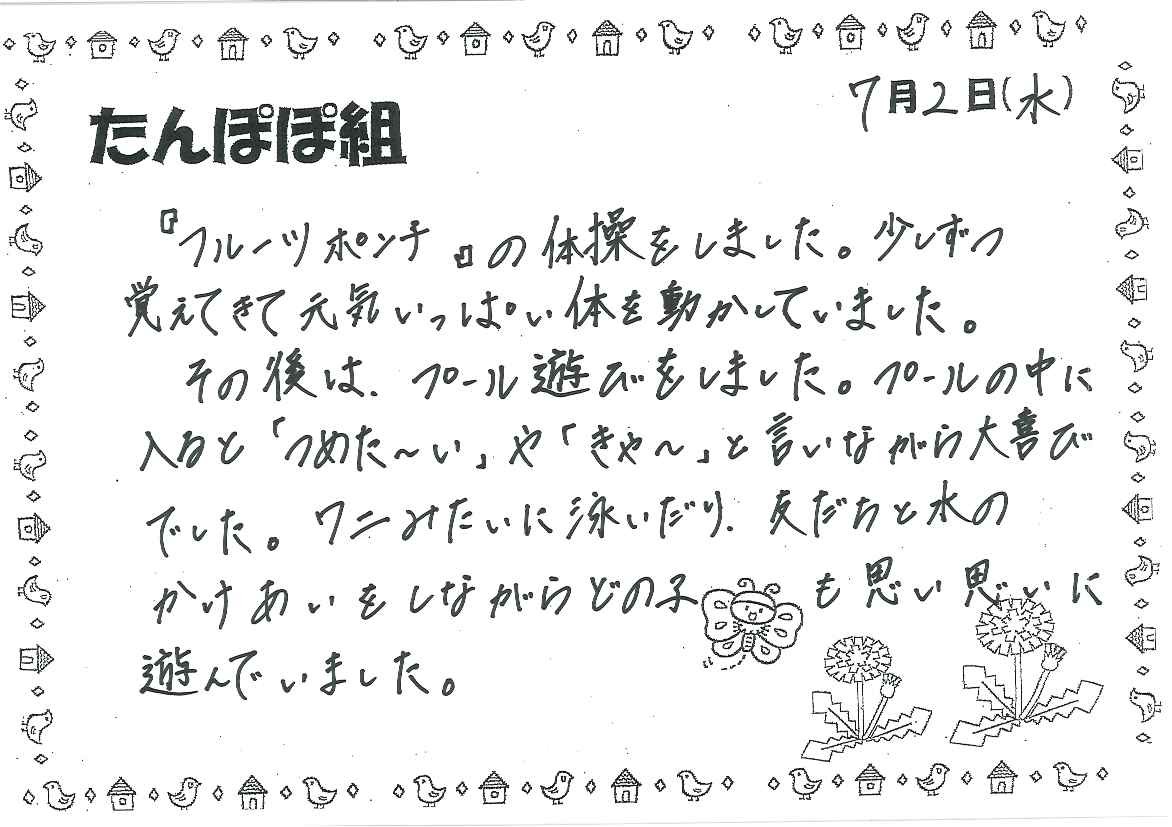 7月2日(水)
たんぽぽ組
『フルーツポンチ』の体操をしました。少しずつ
覚えてきて元気いっぱい体を動かしていました。
その後は、プール遊びをしました。プールの中に
入ると「つめた～い」や「きゃ～」と言いながら大喜び
でした。ワニみたいに泳いだり、友だちと水の
かけあいをしながらどの子も思い思いに
遊んでいました。